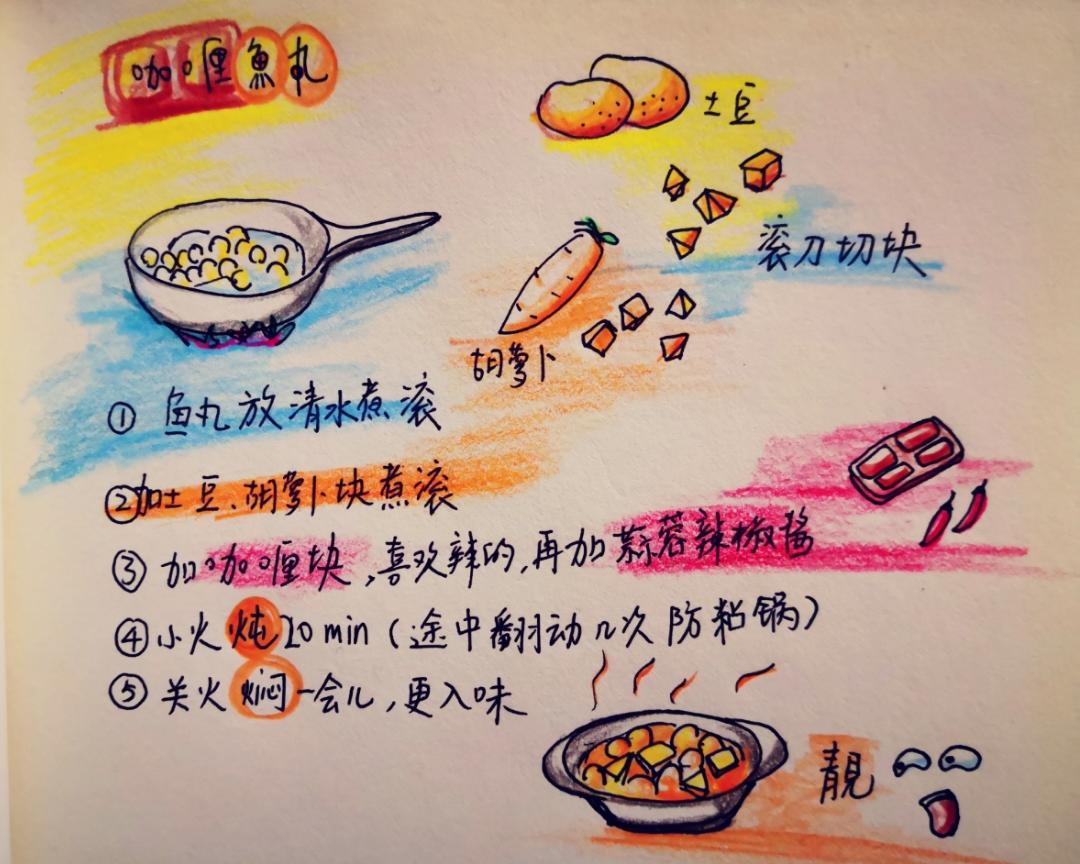 咖喱魚丸
土豆
滚刀切块
胡萝卜
① 鱼丸放清水煮滚
②加土豆、胡萝卜块煮滚
③ 加咖喱块,喜欢辣的,再加蒜蓉辣椒酱
④小火炖20min(途中翻动几次防粘锅)
⑤ 关火焖一会儿,更入味
靚